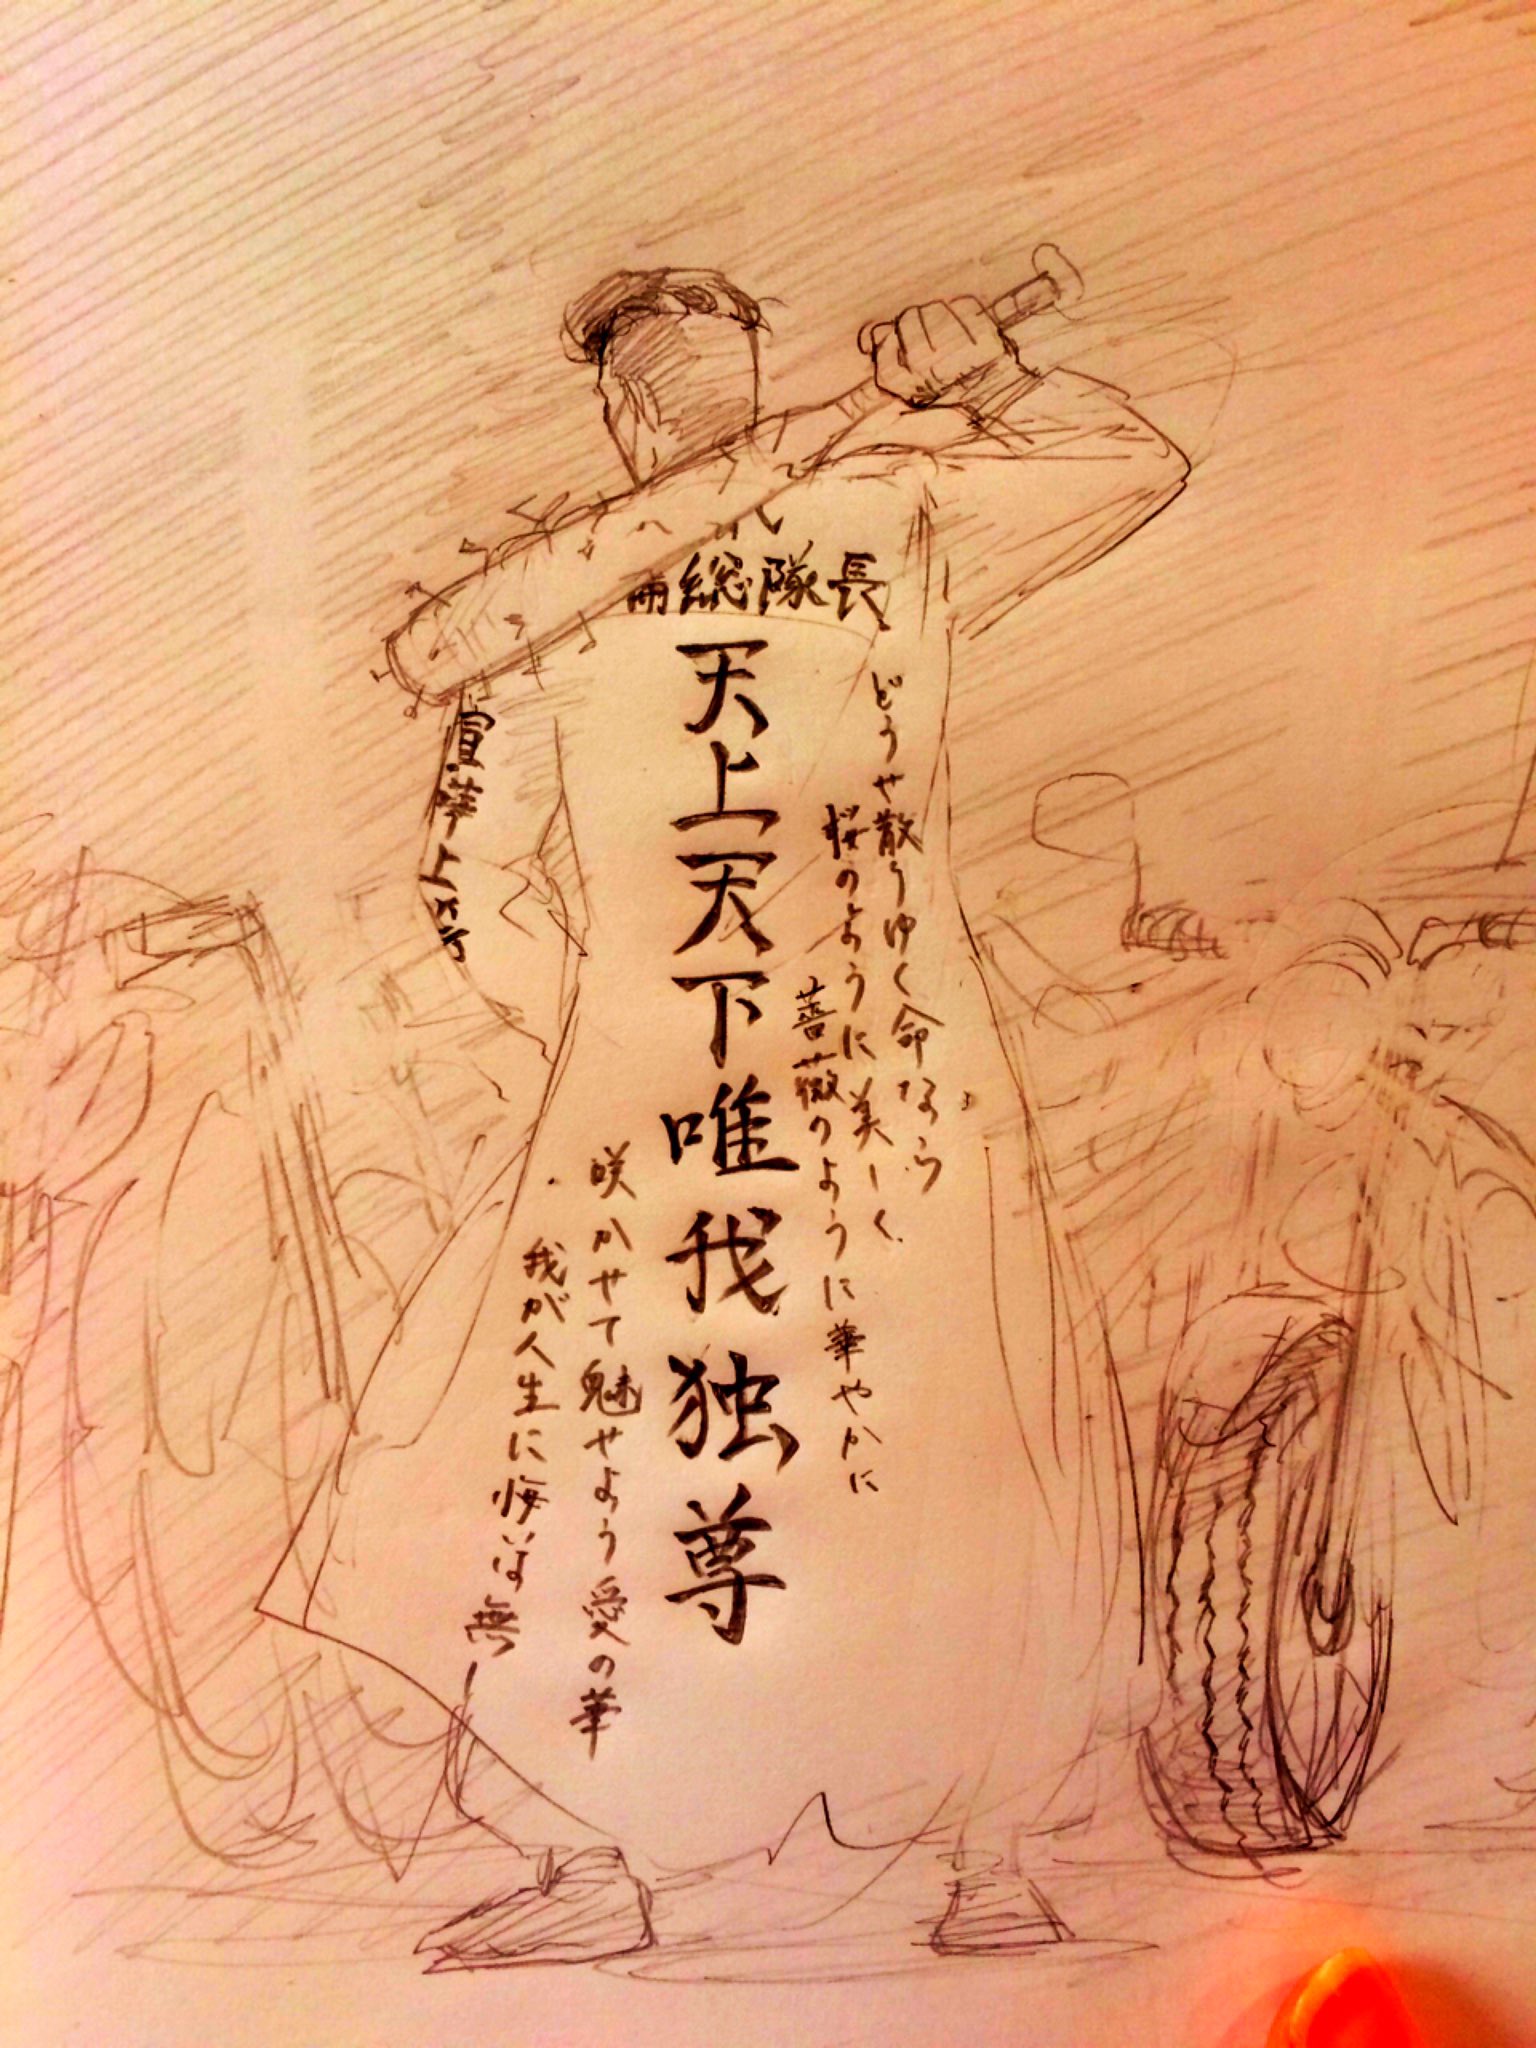 総隊長
どうせ散りゆく命なら
桜のように美しく
薔薇のように華やかに
天上天下唯我独尊
咲かせて魅せよう愛の華
我が人生に悔いは無し
喧嘩上等